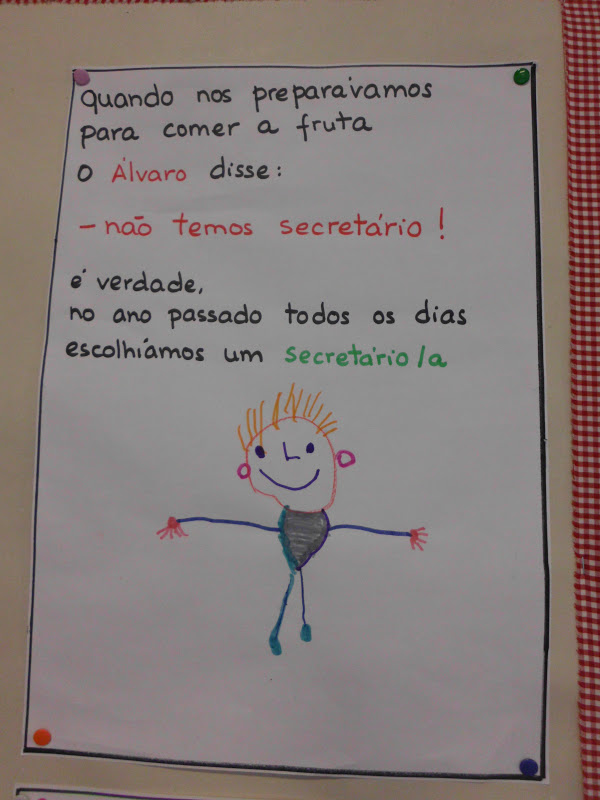 quando nos preparávamos
para comer a fruta
o Álvaro disse:
- não temos secretário!
é verdade,
no ano passado todos os dias
escolhíamos um secretário/a